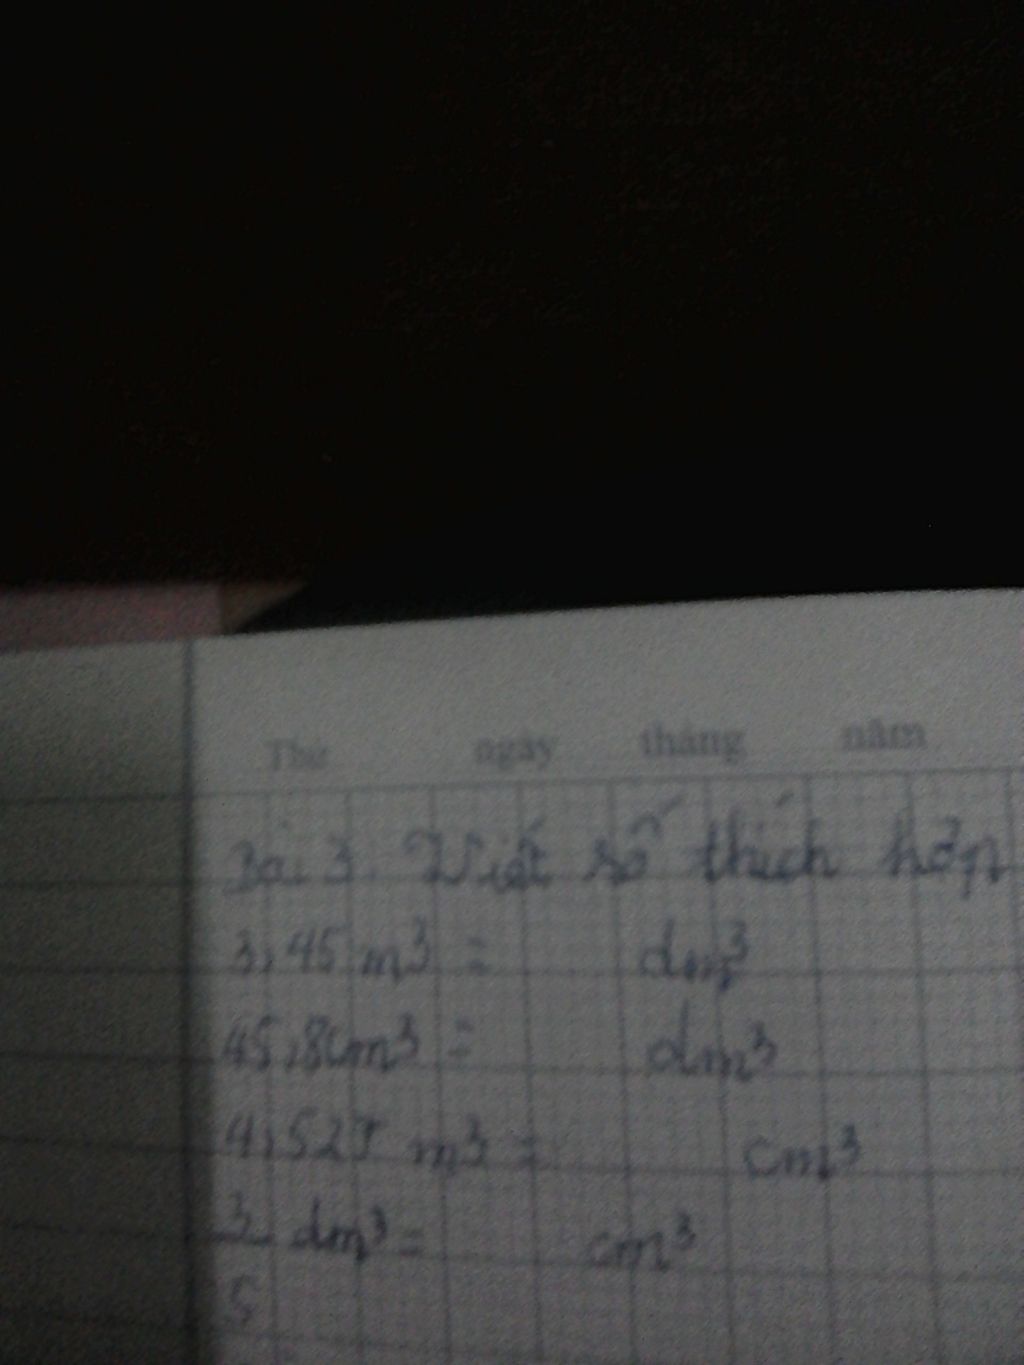 Thứ ngày tháng năm
Bài 3. Viết số thích hợp
3,45 m³ = dm³
45,8cm³ = dm³
4,525 m³ = cm³
3/5 dm³ = cm³